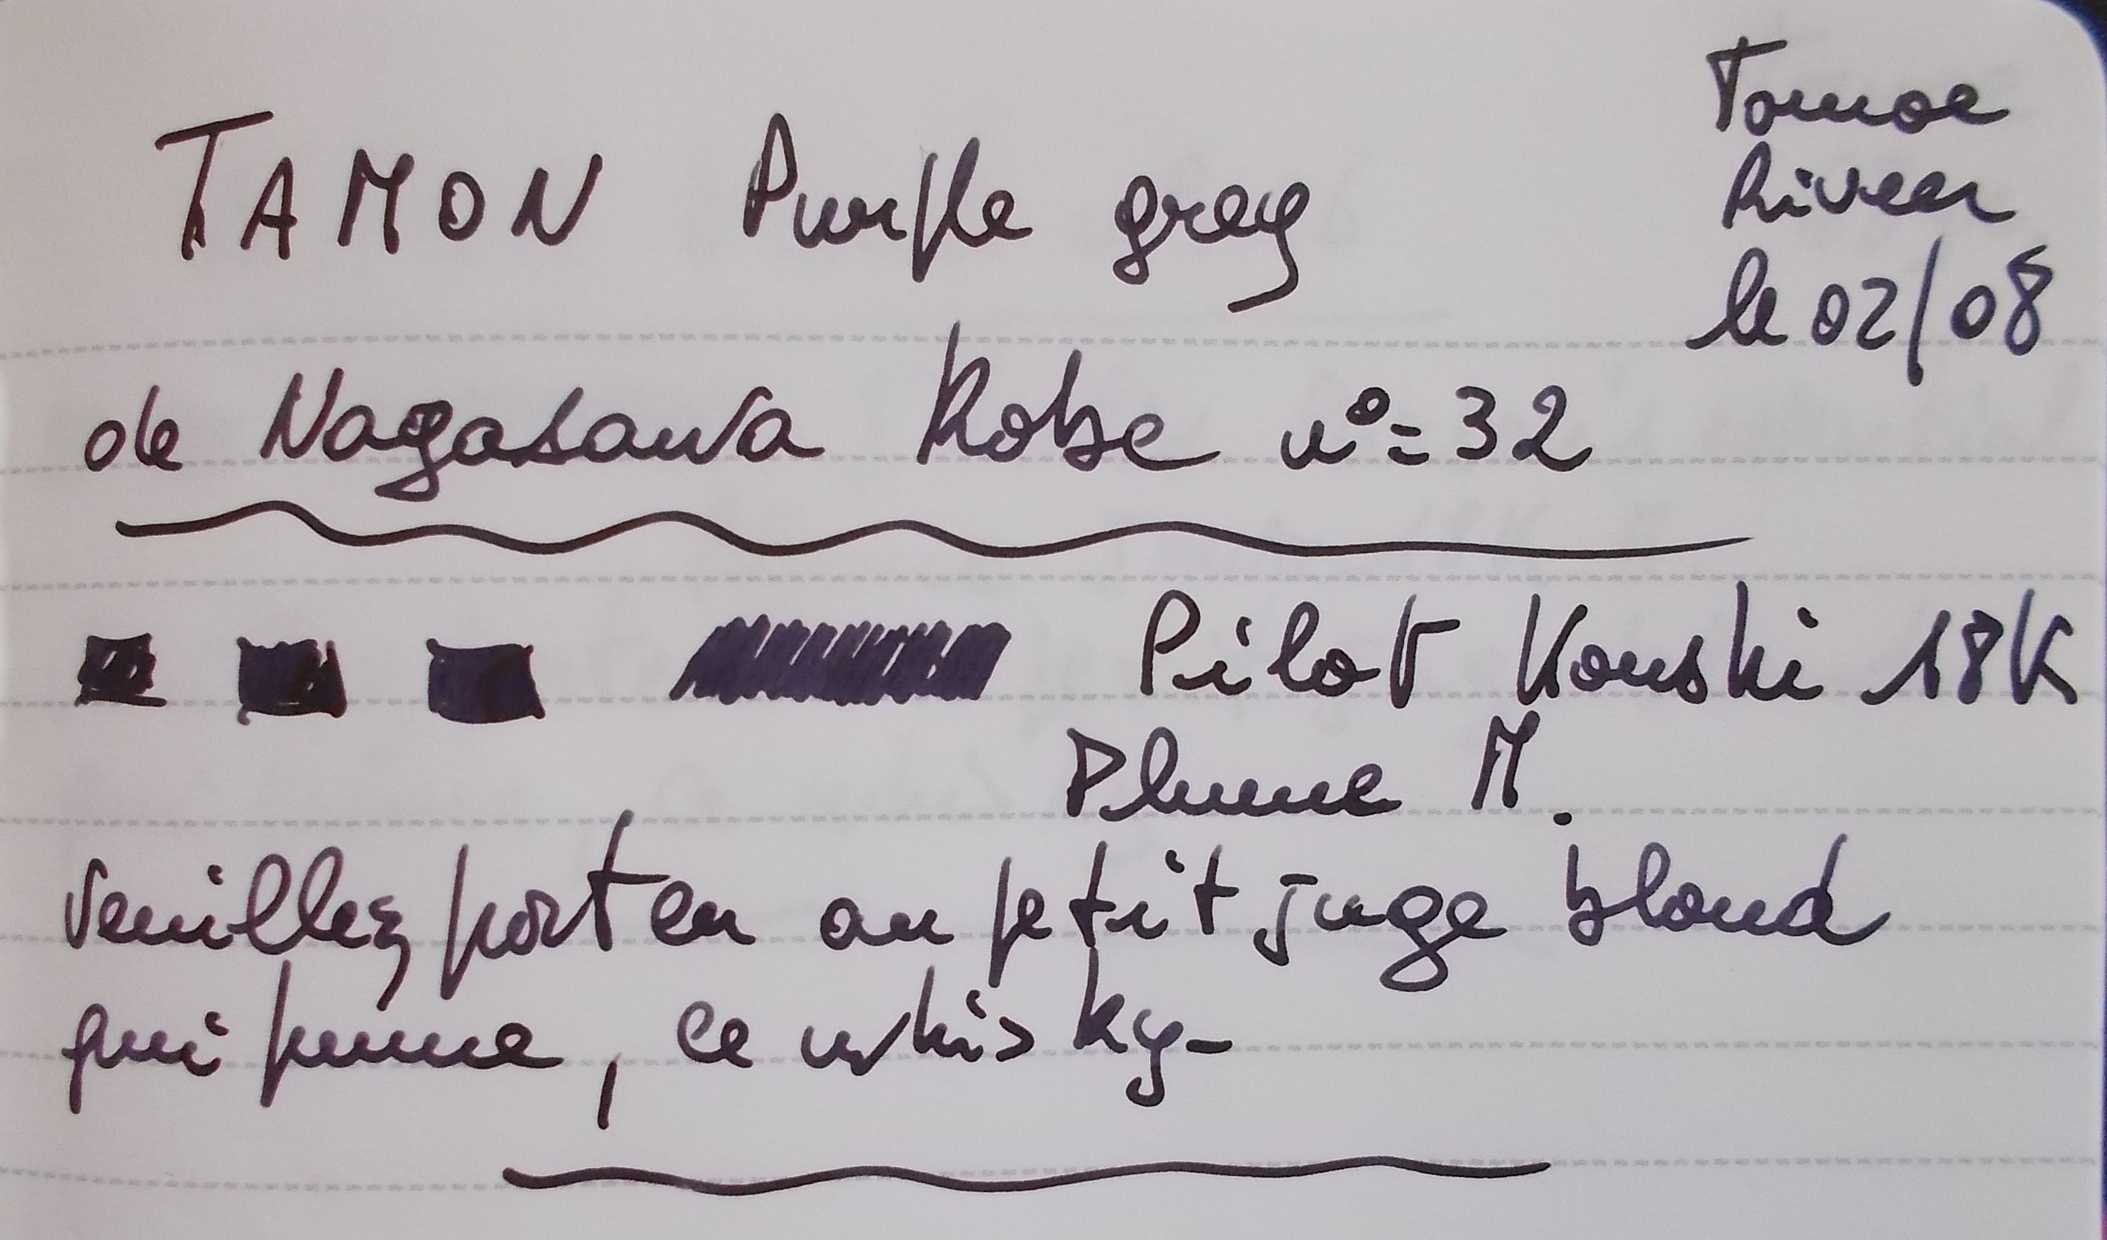 TAMON Purple grey
Tomoe
River
le 02/08
de Nagasawa Kobe n°=32
Pilot Kouski 18K
Plume M.
Veuillez porter au petit juge blond
qui fume, ce whisky-